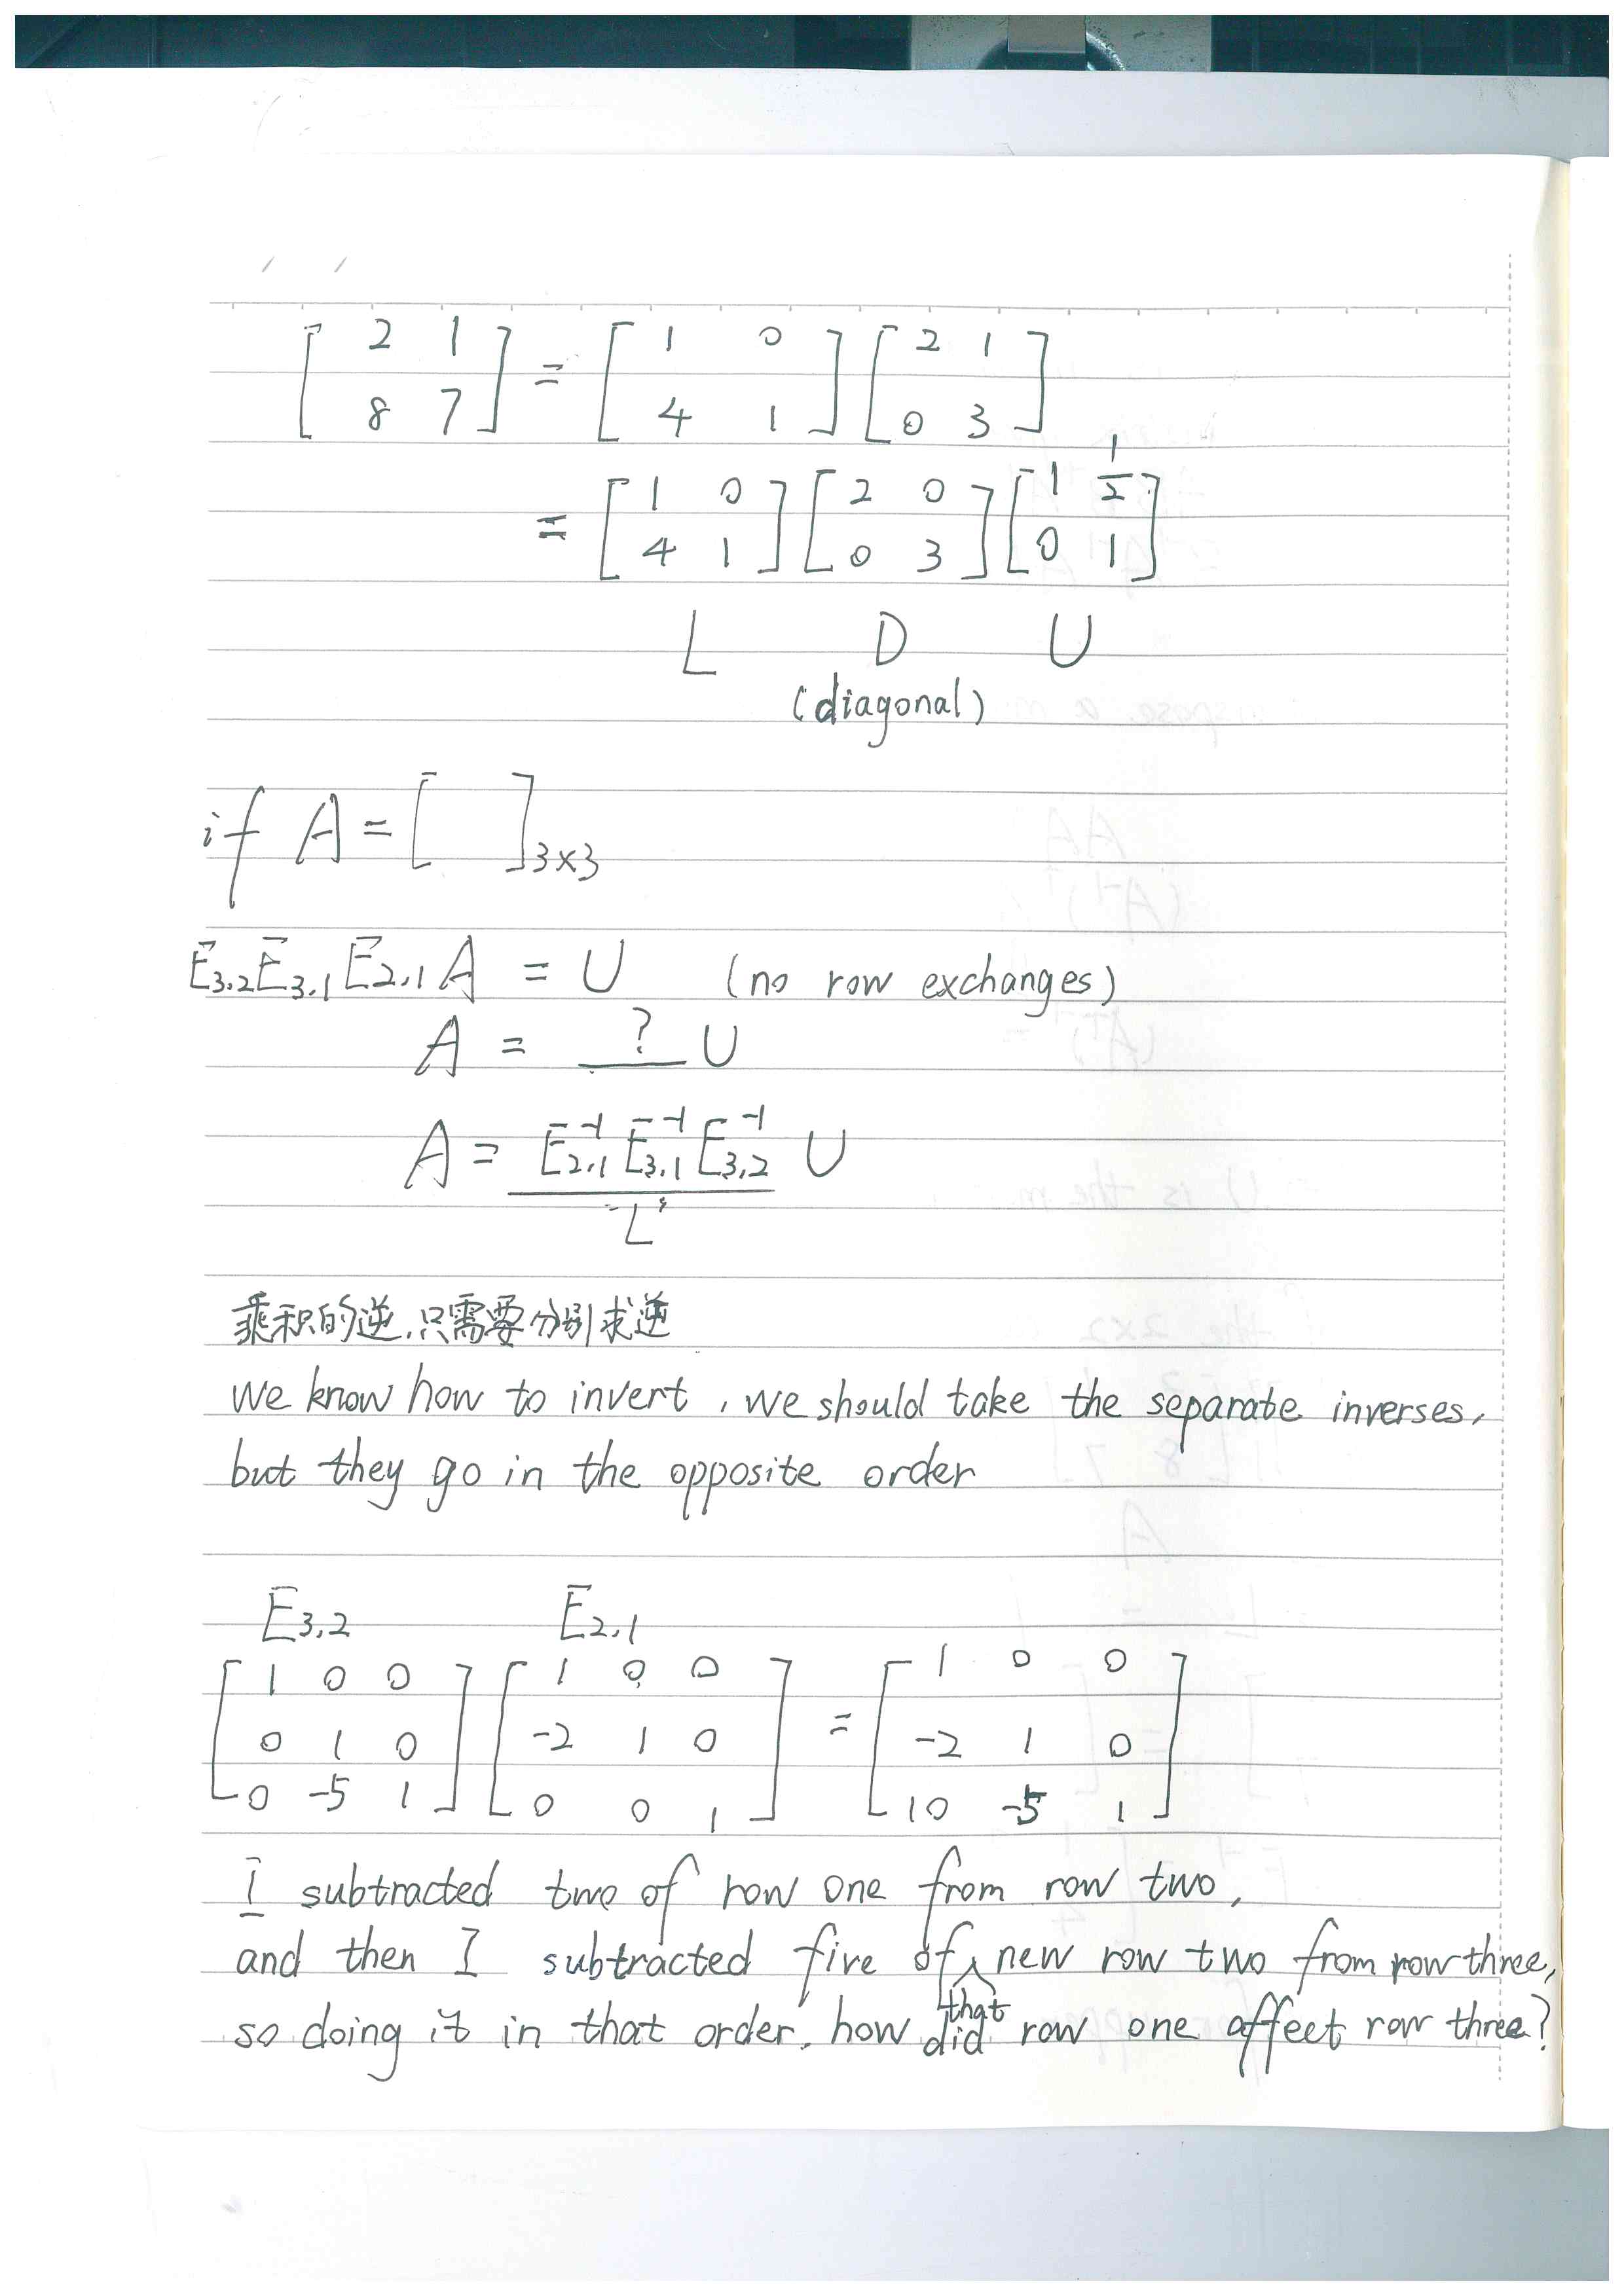 [2 1; 8 7] = [1 0; 4 1] [2 1; 0 3]
= [1 0; 4 1] [2 0; 0 3] [1 1/2; 0 1]
L D U
(diagonal)
if A = [ ]₃ₓ₃
E₃,₂ E₃,₁ E₂,₁ A = U (no row exchanges)
A = ? U
A = E₂,₁⁻¹ E₃,₁⁻¹ E₃,₂⁻¹ U
L
乘积的逆,只需要分别求逆
we know how to invert, we should take the separate inverses,
but they go in the opposite order
E₃,₂ E₂,₁
[1 0 0; 0 1 0; 0 -5 1] [1 0 0; -2 1 0; 0 0 1] = [1 0 0; -2 1 0; 10 -5 1]
I subtracted two of row one from row two,
and then I subtracted five of that new row two from row three,
so doing it in that order, how did row one affect row three?